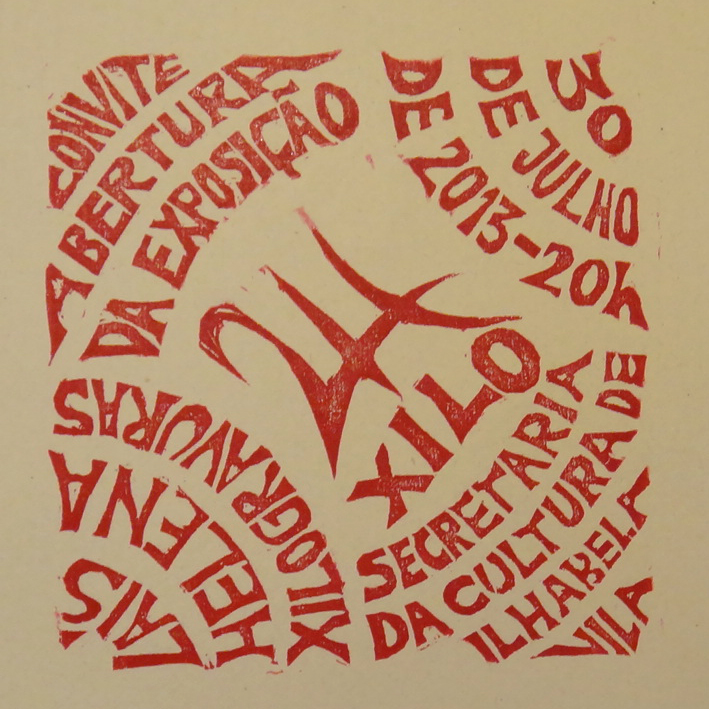 CONVITE
ABERTURA
DA EXPOSIÇÃO
30
DE JULHO
DE 2013-20h
XILO
LAÍS
HELENA
XILOGRAVURAS
SECRETARIA
DA CULTURA DE
ILHABELA
VILA